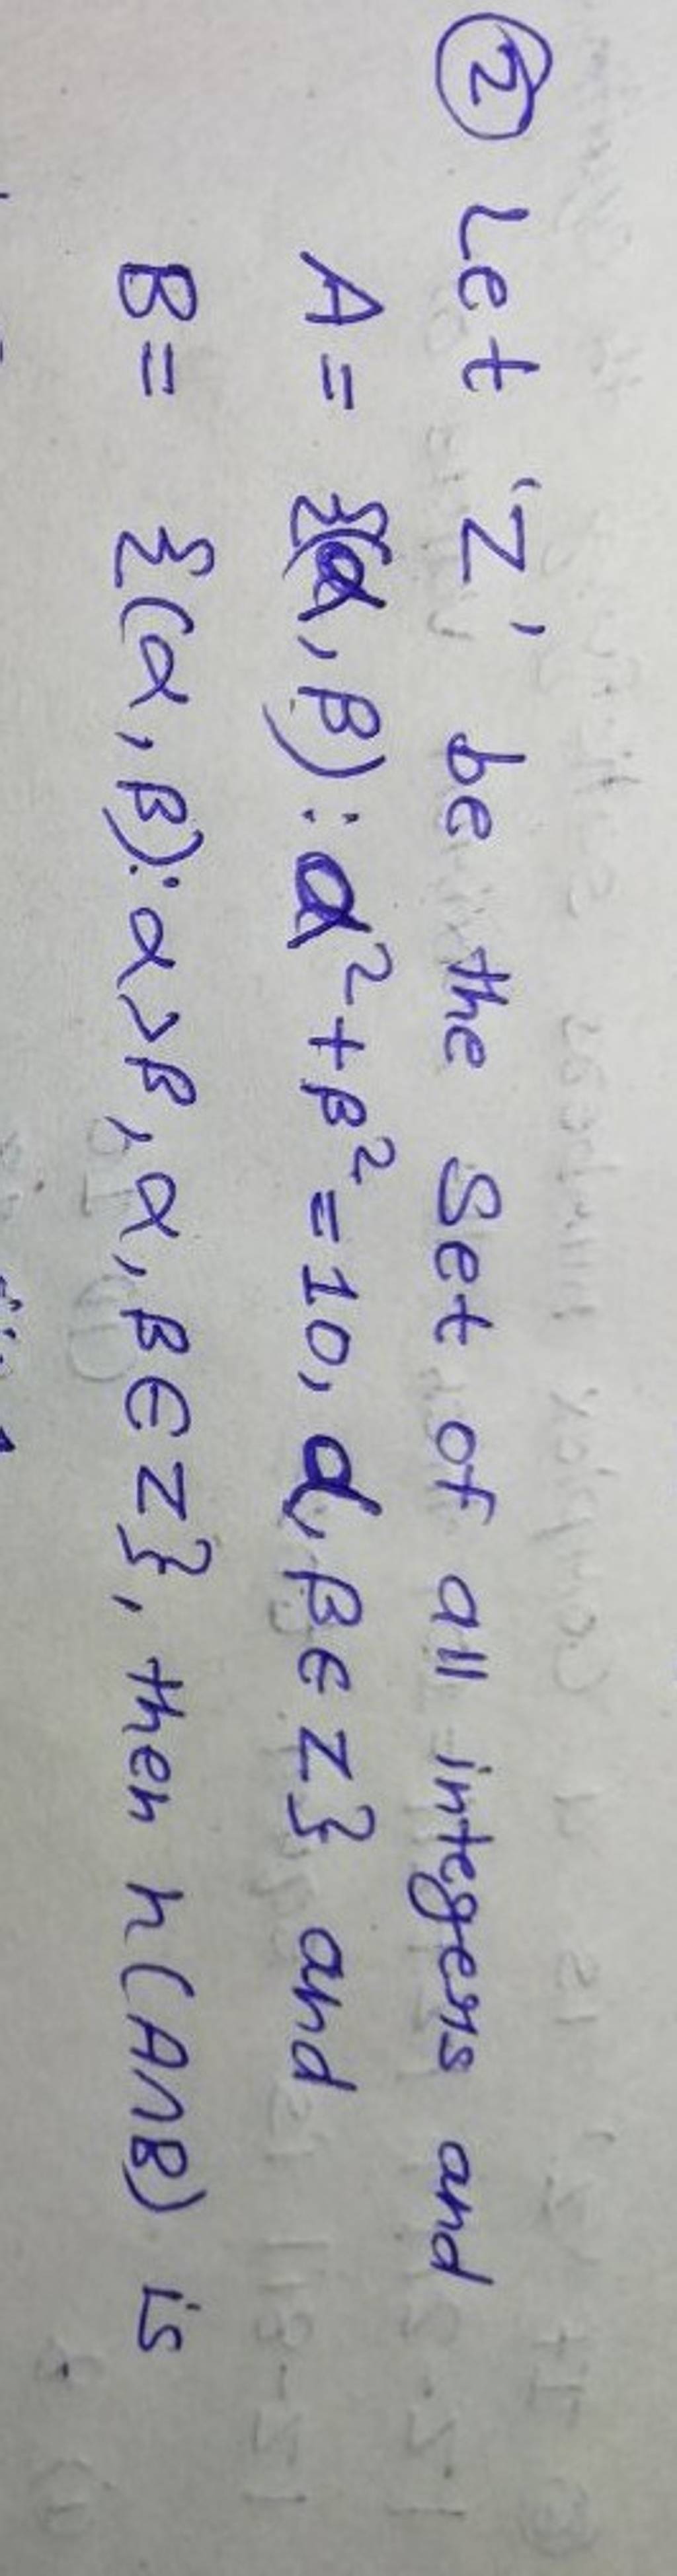 ② Let 'Z' be the Set of all integers and
A = {(α, β) : α² + β² = 10, α, β ∈ Z} and
B = {(α, β) : α > β, α, β ∈ Z}, then n(A∩B) is